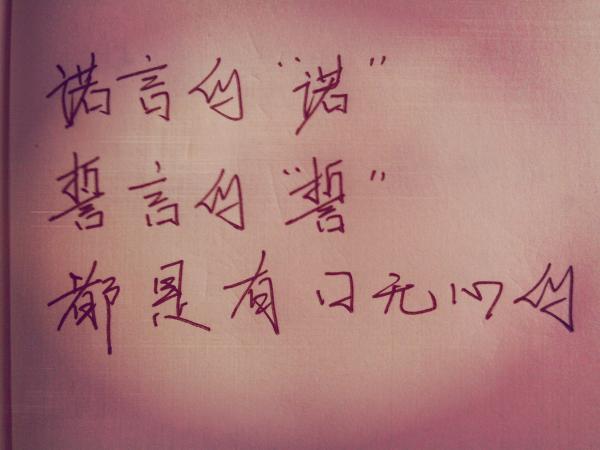 诺言的“诺”
誓言的“誓”
都是有口无心的